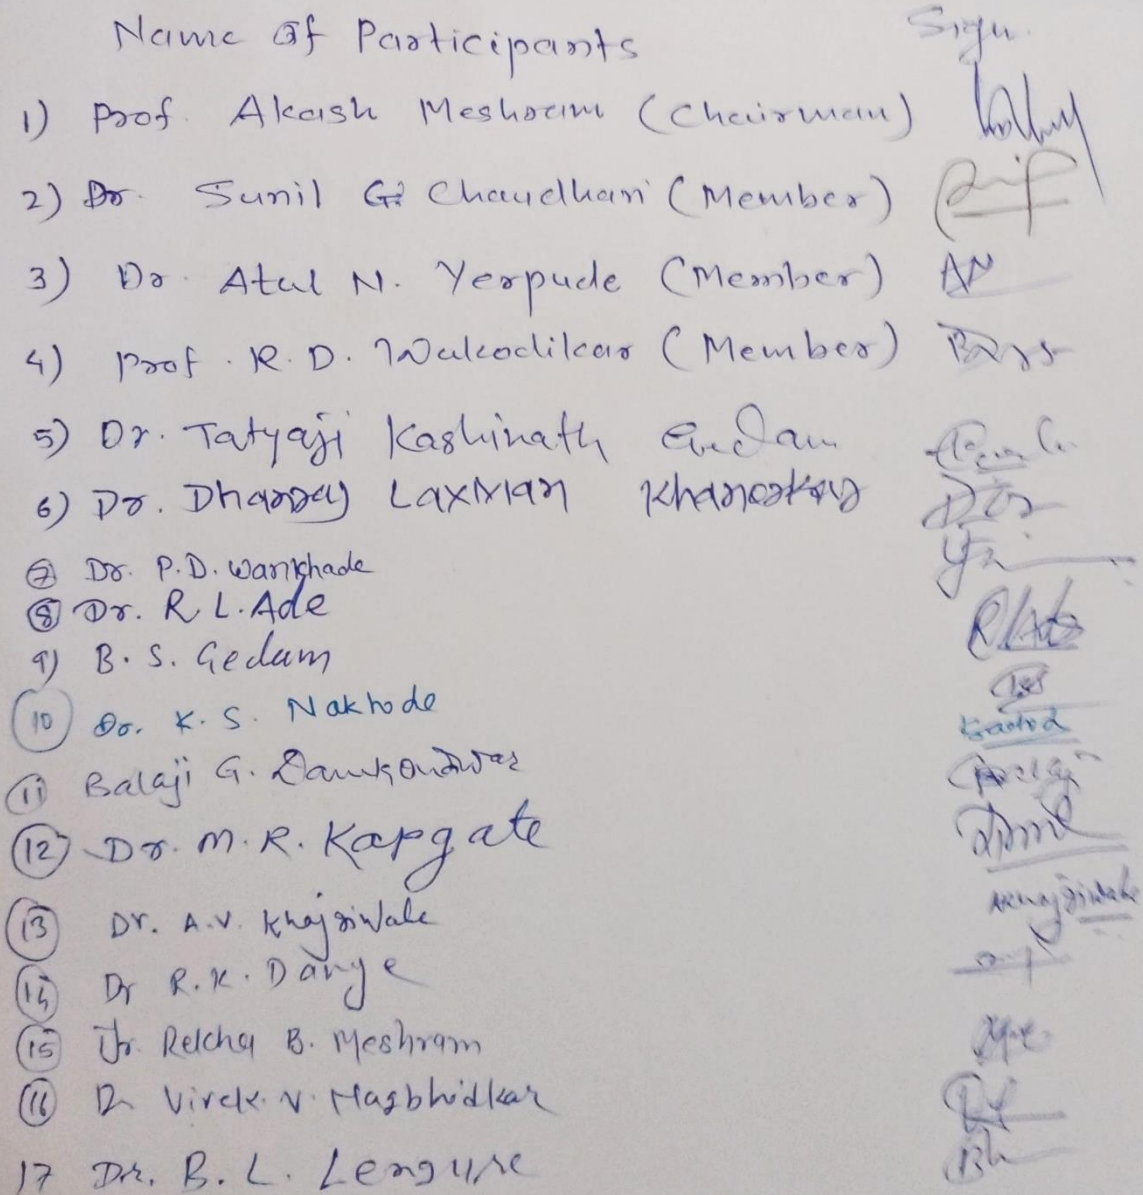 Name of Participants Sign.
1) Prof. Akash Meshram (Chairman)
2) Dr. Sunil G. Chaudhari (Member)
3) Dr. Atul N. Yerpude (Member) AN
4) Prof. R. D. Wakodikar (Member)
5) Dr. Tatyaji Kashinath Gedam
6) Dr. Dhananjay Laxman
7 Dr. P.D. Wankhade
8 Dr. R L. Ade RLAde
9) B. S. Gedam
10 Dr. K. S. Nakhode
11 Balaji G. Damkondwar Balaji
12 Dr. M. R. Kapgate
13 Dr. A.V. Khajriwale AKhajriwale
14 Dr R.K. Danye
15 Dr. Rekha B. Meshram
16 Dr Vivek V. Hasbhidkar
17 Dr. B. L. Lengure